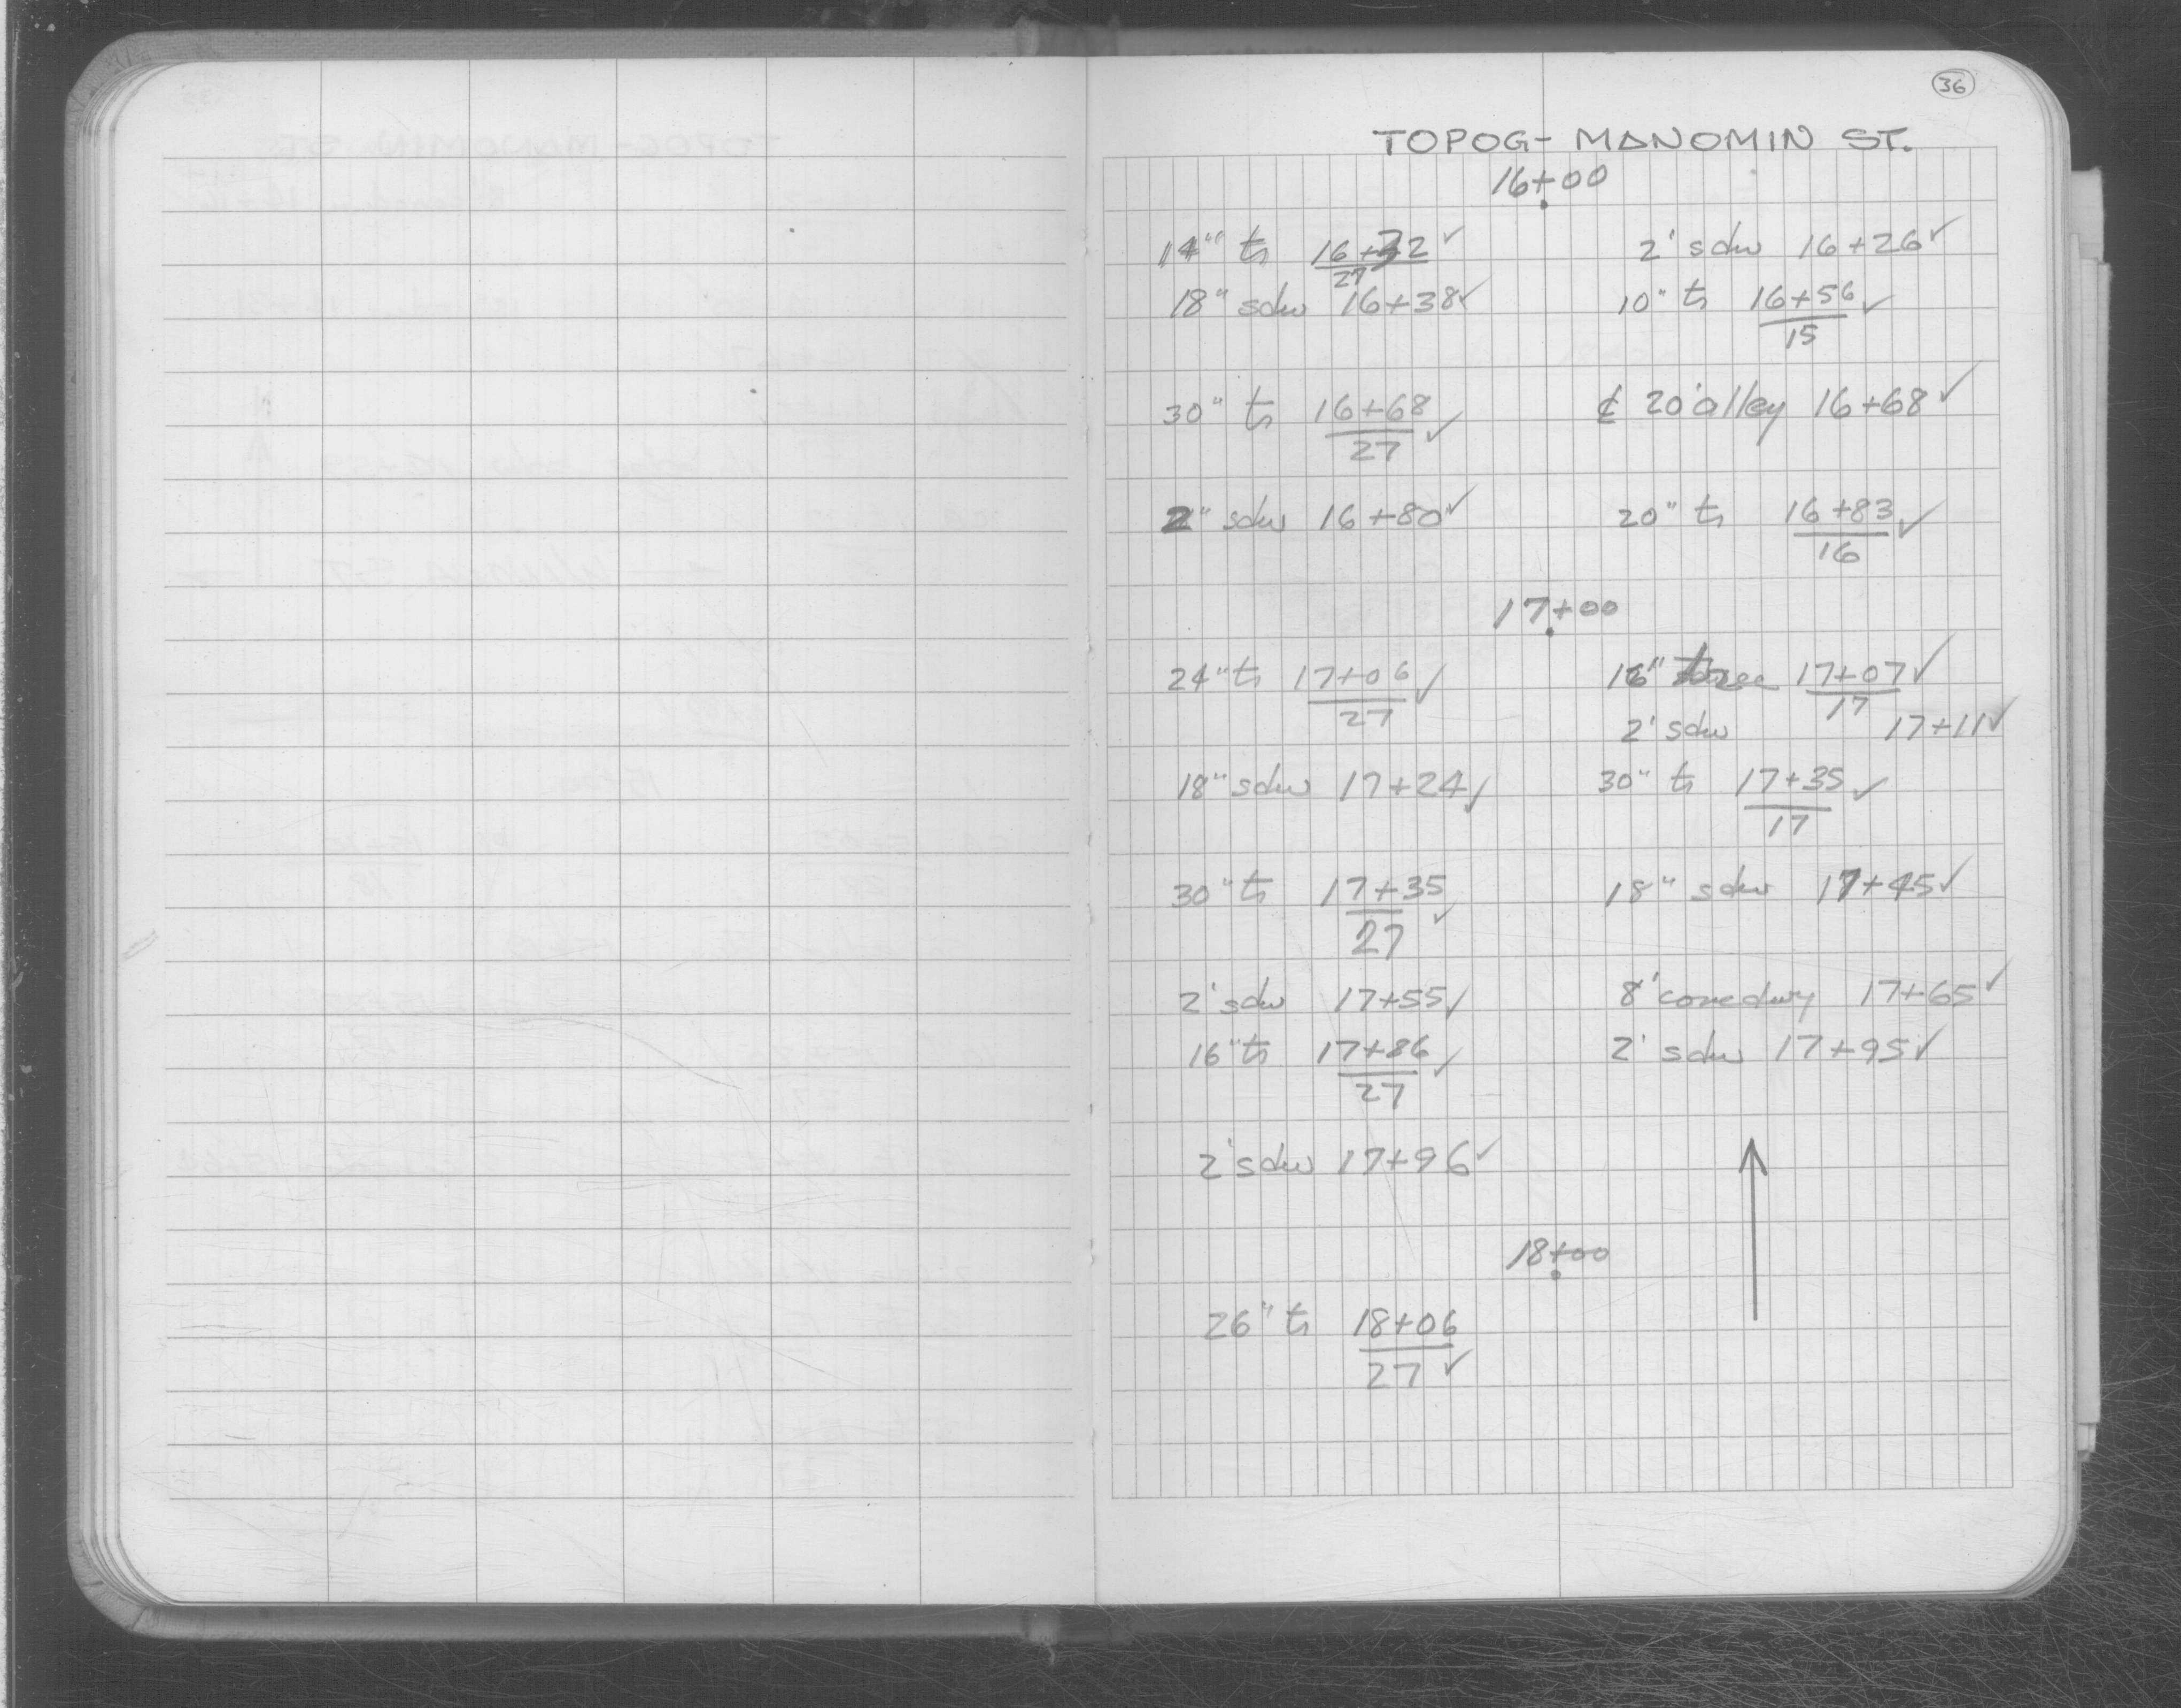 36
TOPOG- MANOMIN ST.
16+00
14" tr 16+32 ✓ 2' sdw 16+26 ✓
27
18" sdw 16+38 ✓ 10" tr 16+56 ✓
15
30" tr 16+68 ✓ ₵ 20' alley 16+68 ✓
27
2" sdw 16+80 ✓ 20" tr 16+83 ✓
16
17+00
24" tr 17+06 ✓ 16" tree 17+07 ✓
27 17
2' sdw 17+11 ✓
18" sdw 17+24 ✓ 30" tr 17+35 ✓
17
30" tr 17+35 ✓ 18" sdw 17+45 ✓
27
2' sdw 17+55 ✓ 8' concdwy 17+65 ✓
16" tr 17+86 ✓ 2' sdw 17+95 ✓
27
2' sdw 17+96 ✓
18+00
26" tr 18+06
27 ✓